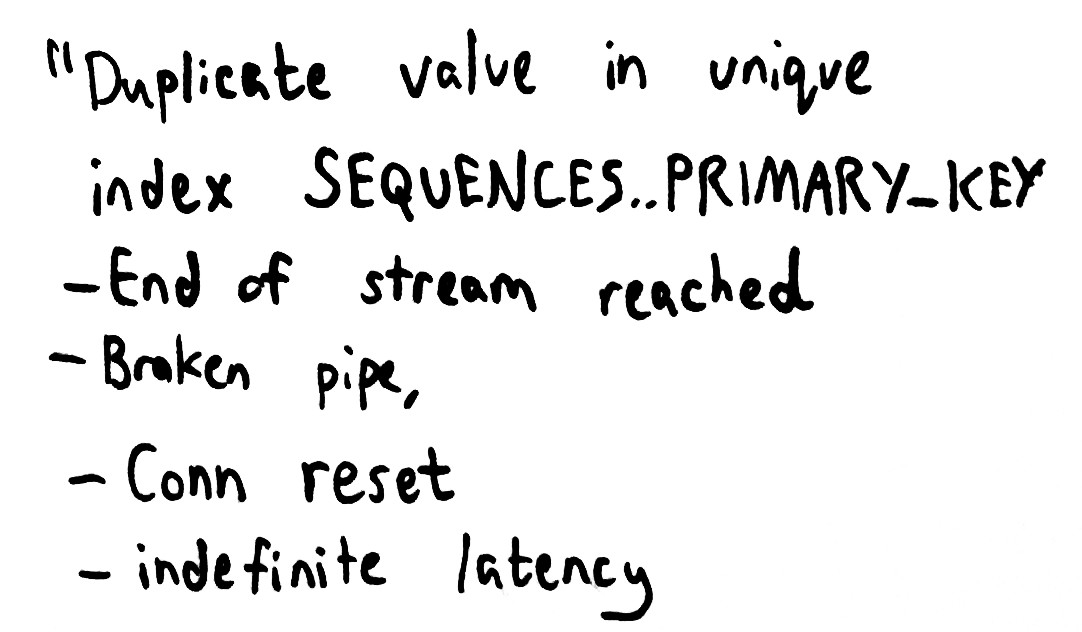 "Duplicate value in unique
index SEQUENCES..PRIMARY_KEY
- End of stream reached
- Broken pipe,
- Conn reset
- indefinite latency